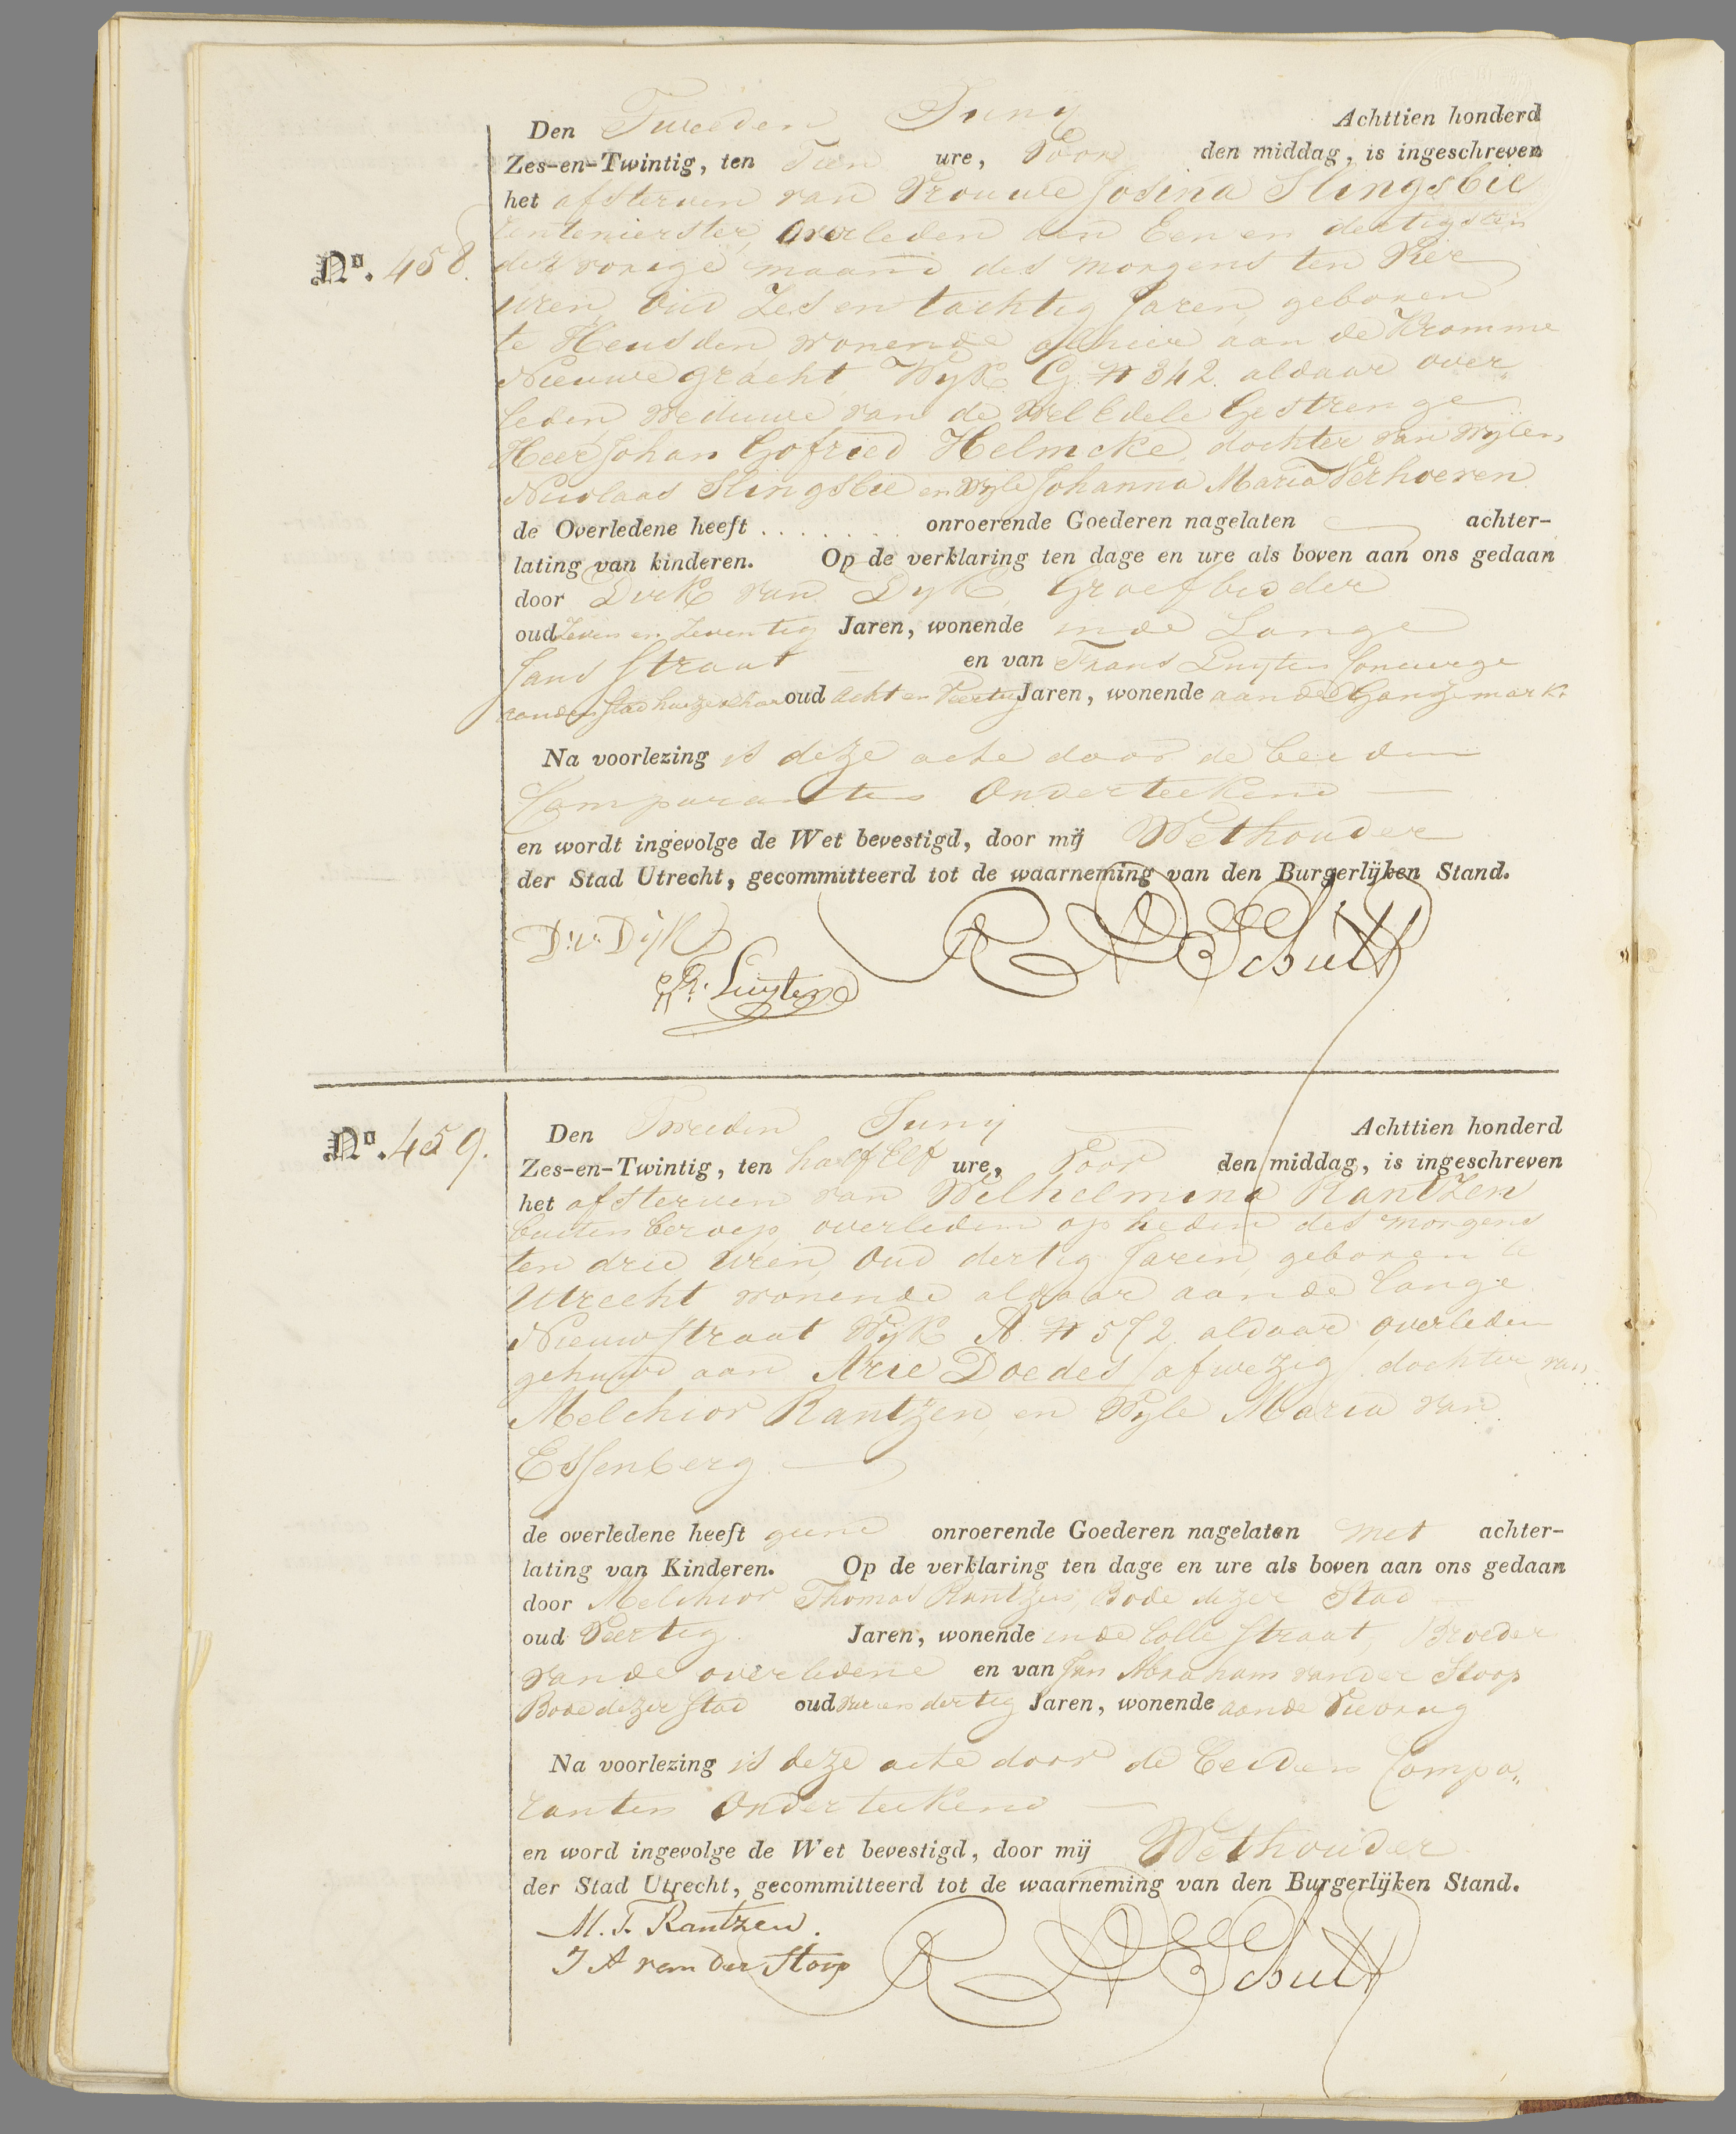 Den Tweeden Juny Achttien honderd
Zes-en-Twintig, ten Tien ure, Voor den middag, is ingeschreven
het afsterven van Vrouwe Josina Slingsbie
Rentenierster, Overleden den Een en dertigsten
No. 458. der vorige maand des morgens ten Vier
uren, oud Zes en tachtig Jaren, geboren
te Heusden wonende alhier aan de Kromme
Nieuwegracht Wyk G. N 342. aldaar over
leden weduwe van de Wel Edele Gestrenge
Heer Johan Gofried Helmcke, dochter van wylen
Nicolaas Slingsbie en Wyle Johanna Maria Verhoeven
de Overledene heeft . . . . . . . onroerende Goederen nagelaten achter-
lating van kinderen. Op de verklaring ten dage en ure als boven aan ons gedaan
door Dirk van Dyk, Groefbidder
oud Zeven en Zeventig Jaren, wonende in de Lange
Jans Straat en van Frans Luyten
oud acht en Veertig Jaren, wonende aan de Ganzemarkt
Na voorlezing is deze acte door de beiden
Comparanten Onderteekend
en wordt ingevolge de Wet bevestigd, door mij Wethouder
der Stad Utrecht, gecommitteerd tot de waarneming van den Burgerlijken Stand.
D: v: Dijk
Fr. Luyten
Schuit
No. 459. Den Tweeden Juny Achttien honderd
Zes-en-Twintig, ten half Elf ure, Voor den middag, is ingeschreven
het afsterven van Wilhelmina Rantzen
buiten beroep, overleden op heden des morgens
ten drie uren, Oud dertig Jaren, geboren te
Utrecht wonende aldaar aan de Lange
Nieuwstraat Wyk A. N 572. aldaar overleden
gehuwd aan Arie Doedes, afwezig, dochter van
Melchior Rantzen, en Wyle Maria van
Essenberg
de overledene heeft geene onroerende Goederen nagelaten met achter-
lating van Kinderen. Op de verklaring ten dage en ure als boven aan ons gedaan
door Melchior Thomas Rantzen, Bode dezer Stad
oud Veertig Jaren, wonende in de Straat, Broeder
van de overledene en van Jan Abraham van der Stoop
Bode dezer Stad oud en dertig Jaren, wonende aan de Viebrug
Na voorlezing is deze acte door de beiden Compa„
ranten Onderteekend
en word ingevolge de Wet bevestigd, door mij Wethouder
der Stad Utrecht, gecommitteerd tot de waarneming van den Burgerlijken Stand.
M. T. Rantzen.
J A van der Stoop
Schuit